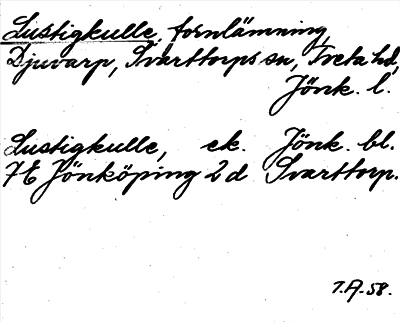 Lustigkulle, fornlämning,
Djuvarp, Svarttorps sn, Tveta hd,
Jönk. l.
Lustigkulle, ek. Jönk. bl.
7E Jönköping 2d Svarttorp.
T.A. 58.